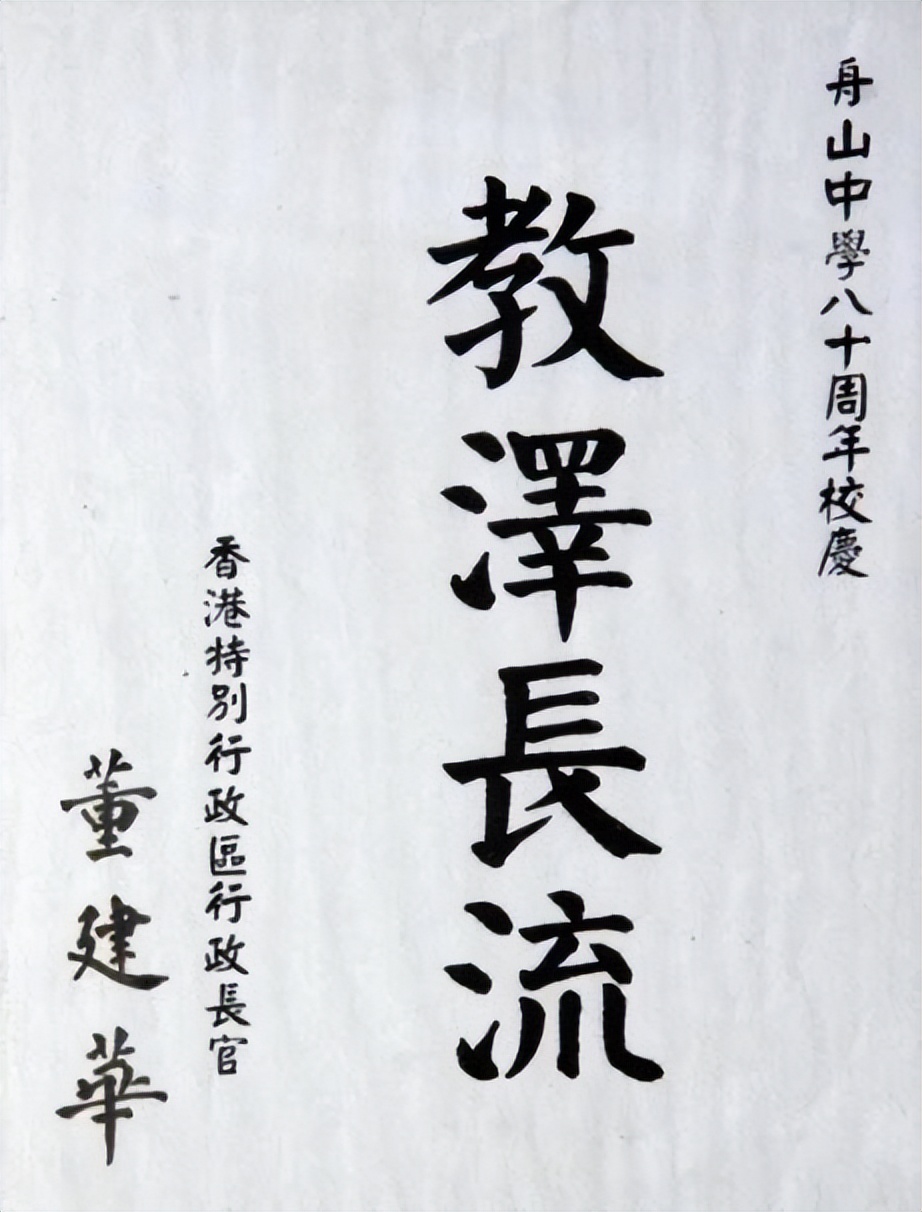 舟山中學八十周年校慶
教澤長流
香港特別行政區行政長官
董建華